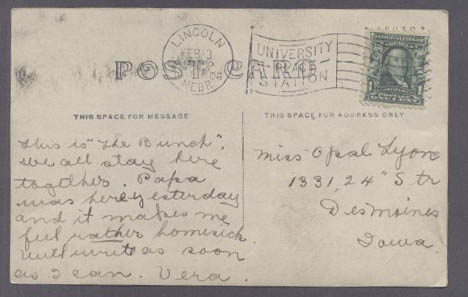 LINCOLN
FEB 13
NEBR.
UNIVERSITY
STATION
POST CARD
THIS SPACE FOR MESSAGE
THIS SPACE FOR ADDRESS ONLY
This is "The Bunch".
We all stay here
together. Papa
was here yesterday
and it makes me
feel rather homesick.
Will write as soon
as I can. Vera.
Miss Opal Lyon
1331, 24" Str
Desmoines
Iowa.